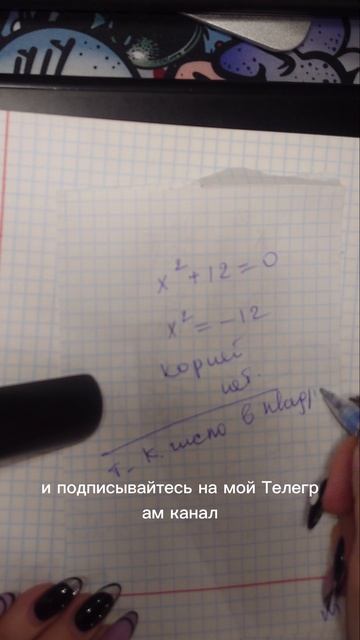 x² + 12 = 0
x² = -12
корней
нет.
т. к. число в квадр
и подписывайтесь на мой Телегр
ам канал